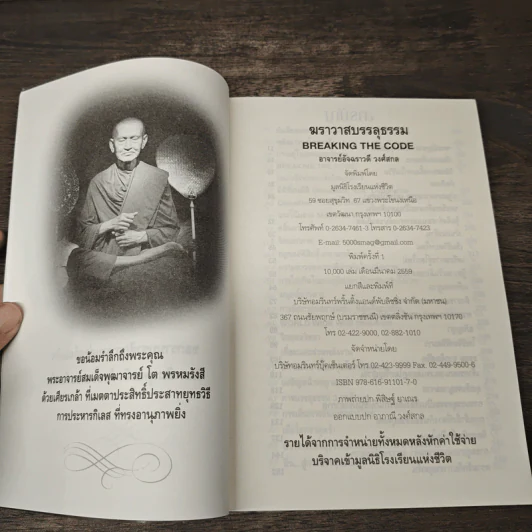 ขอน้อมรำลึกถึงพระคุณ
พระอาจารย์สมเด็จพุฒาจารย์ โต พรหมรังสี
ด้วยเศียรเกล้า ที่เมตตาประสิทธิ์ประสาทยุทธวิธี
การประหารกิเลส ที่ทรงอานุภาพยิ่ง
ฆราวาสบรรลุธรรม
BREAKING THE CODE
อาจารย์อัจฉราวดี วงศ์สกล
จัดพิมพ์โดย
มูลนิธิโรงเรียนแห่งชีวิต
59 ซอยสุขุมวิท 67 แขวงพระโขนงเหนือ
เขตวัฒนา กรุงเทพฯ 10100
โทรศัพท์ 0-2634-7461-3 โทรสาร 0-2634-7423
E-mail 5000smaq@gmail.com
พิมพ์ครั้งที่ 1
10,000 เล่ม เดือนมีนาคม 2559
แยกสีและพิมพ์ที่
บริษัทอมรินทร์พริ้นติ้งแอนด์พับลิชชิ่ง จำกัด (มหาชน)
367 ถนนชัยพฤกษ์ (บรมราชชนนี) เขตตลิ่งชัน กรุงเทพฯ 10170
โทร 02-422-9000, 02-882-1010
จัดจำหน่ายโดย
บริษัทอมรินทร์บุ๊คเซ็นเตอร์ โทร 02-423-9999 Fax. 02-449-9500-6
ISBN 978-616-91101-7-0
ภาพถ่ายปก พิสิษฐ์
ออกแบบปก อาภาณี วงศ์สกล
รายได้จากการจำหน่ายทั้งหมดหลังหักค่าใช้จ่าย
บริจาคเข้ามูลนิธิโรงเรียนแห่งชีวิต